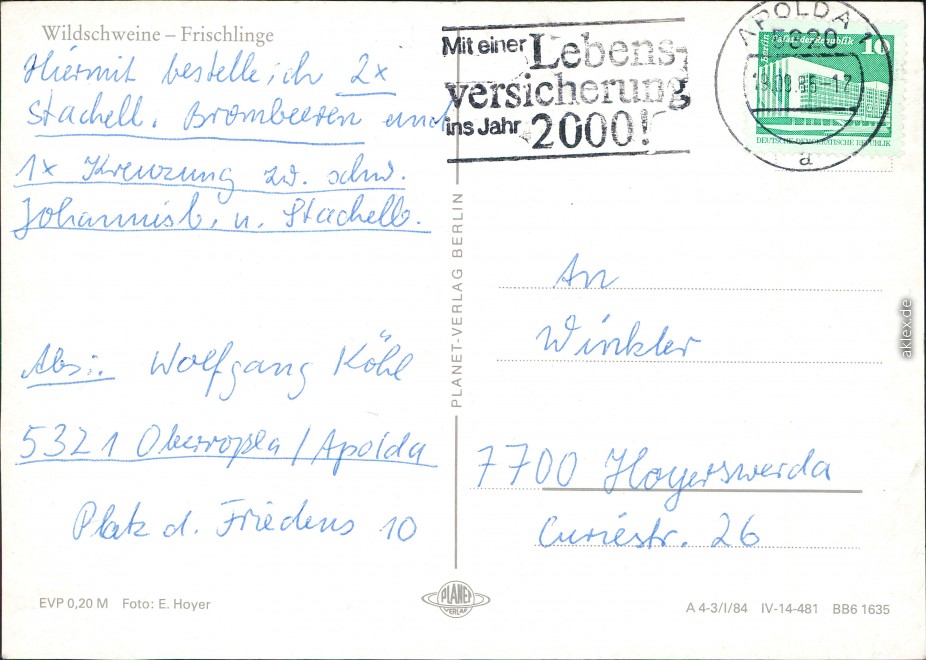 Wildschweine – Frischlinge
Hiermit bestelle ich 2x
Stachell. Brombeeren und
1x Kreuzung zw. schw.
Johannisb. u. Stachelb.
Abs.: Wolfgang Köhl
5321 Oberroßla / Apolda
Platz d. Friedens 10
EVP 0,20 M Foto: E. Hoyer
PLANET-VERLAG BERLIN
PLANET
VERLAG
Mit einer Lebens-
versicherung
ins Jahr 2000!
APOLDA 1
5320
a
berlin Palast der Republik 10
DEUTSCHE DEMOKRATISCHE REPUBLIK
An
Winkler
7700 Hoyerswerda
Curiestr. 26
A 4-3/I/84 IV-14-481 BB6 1635
aklex.de